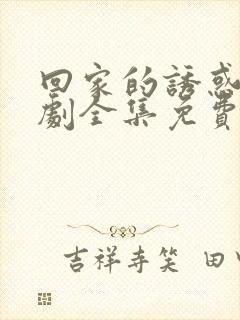 回家的誘惑
劇全集免費
吉祥寺笑 田中